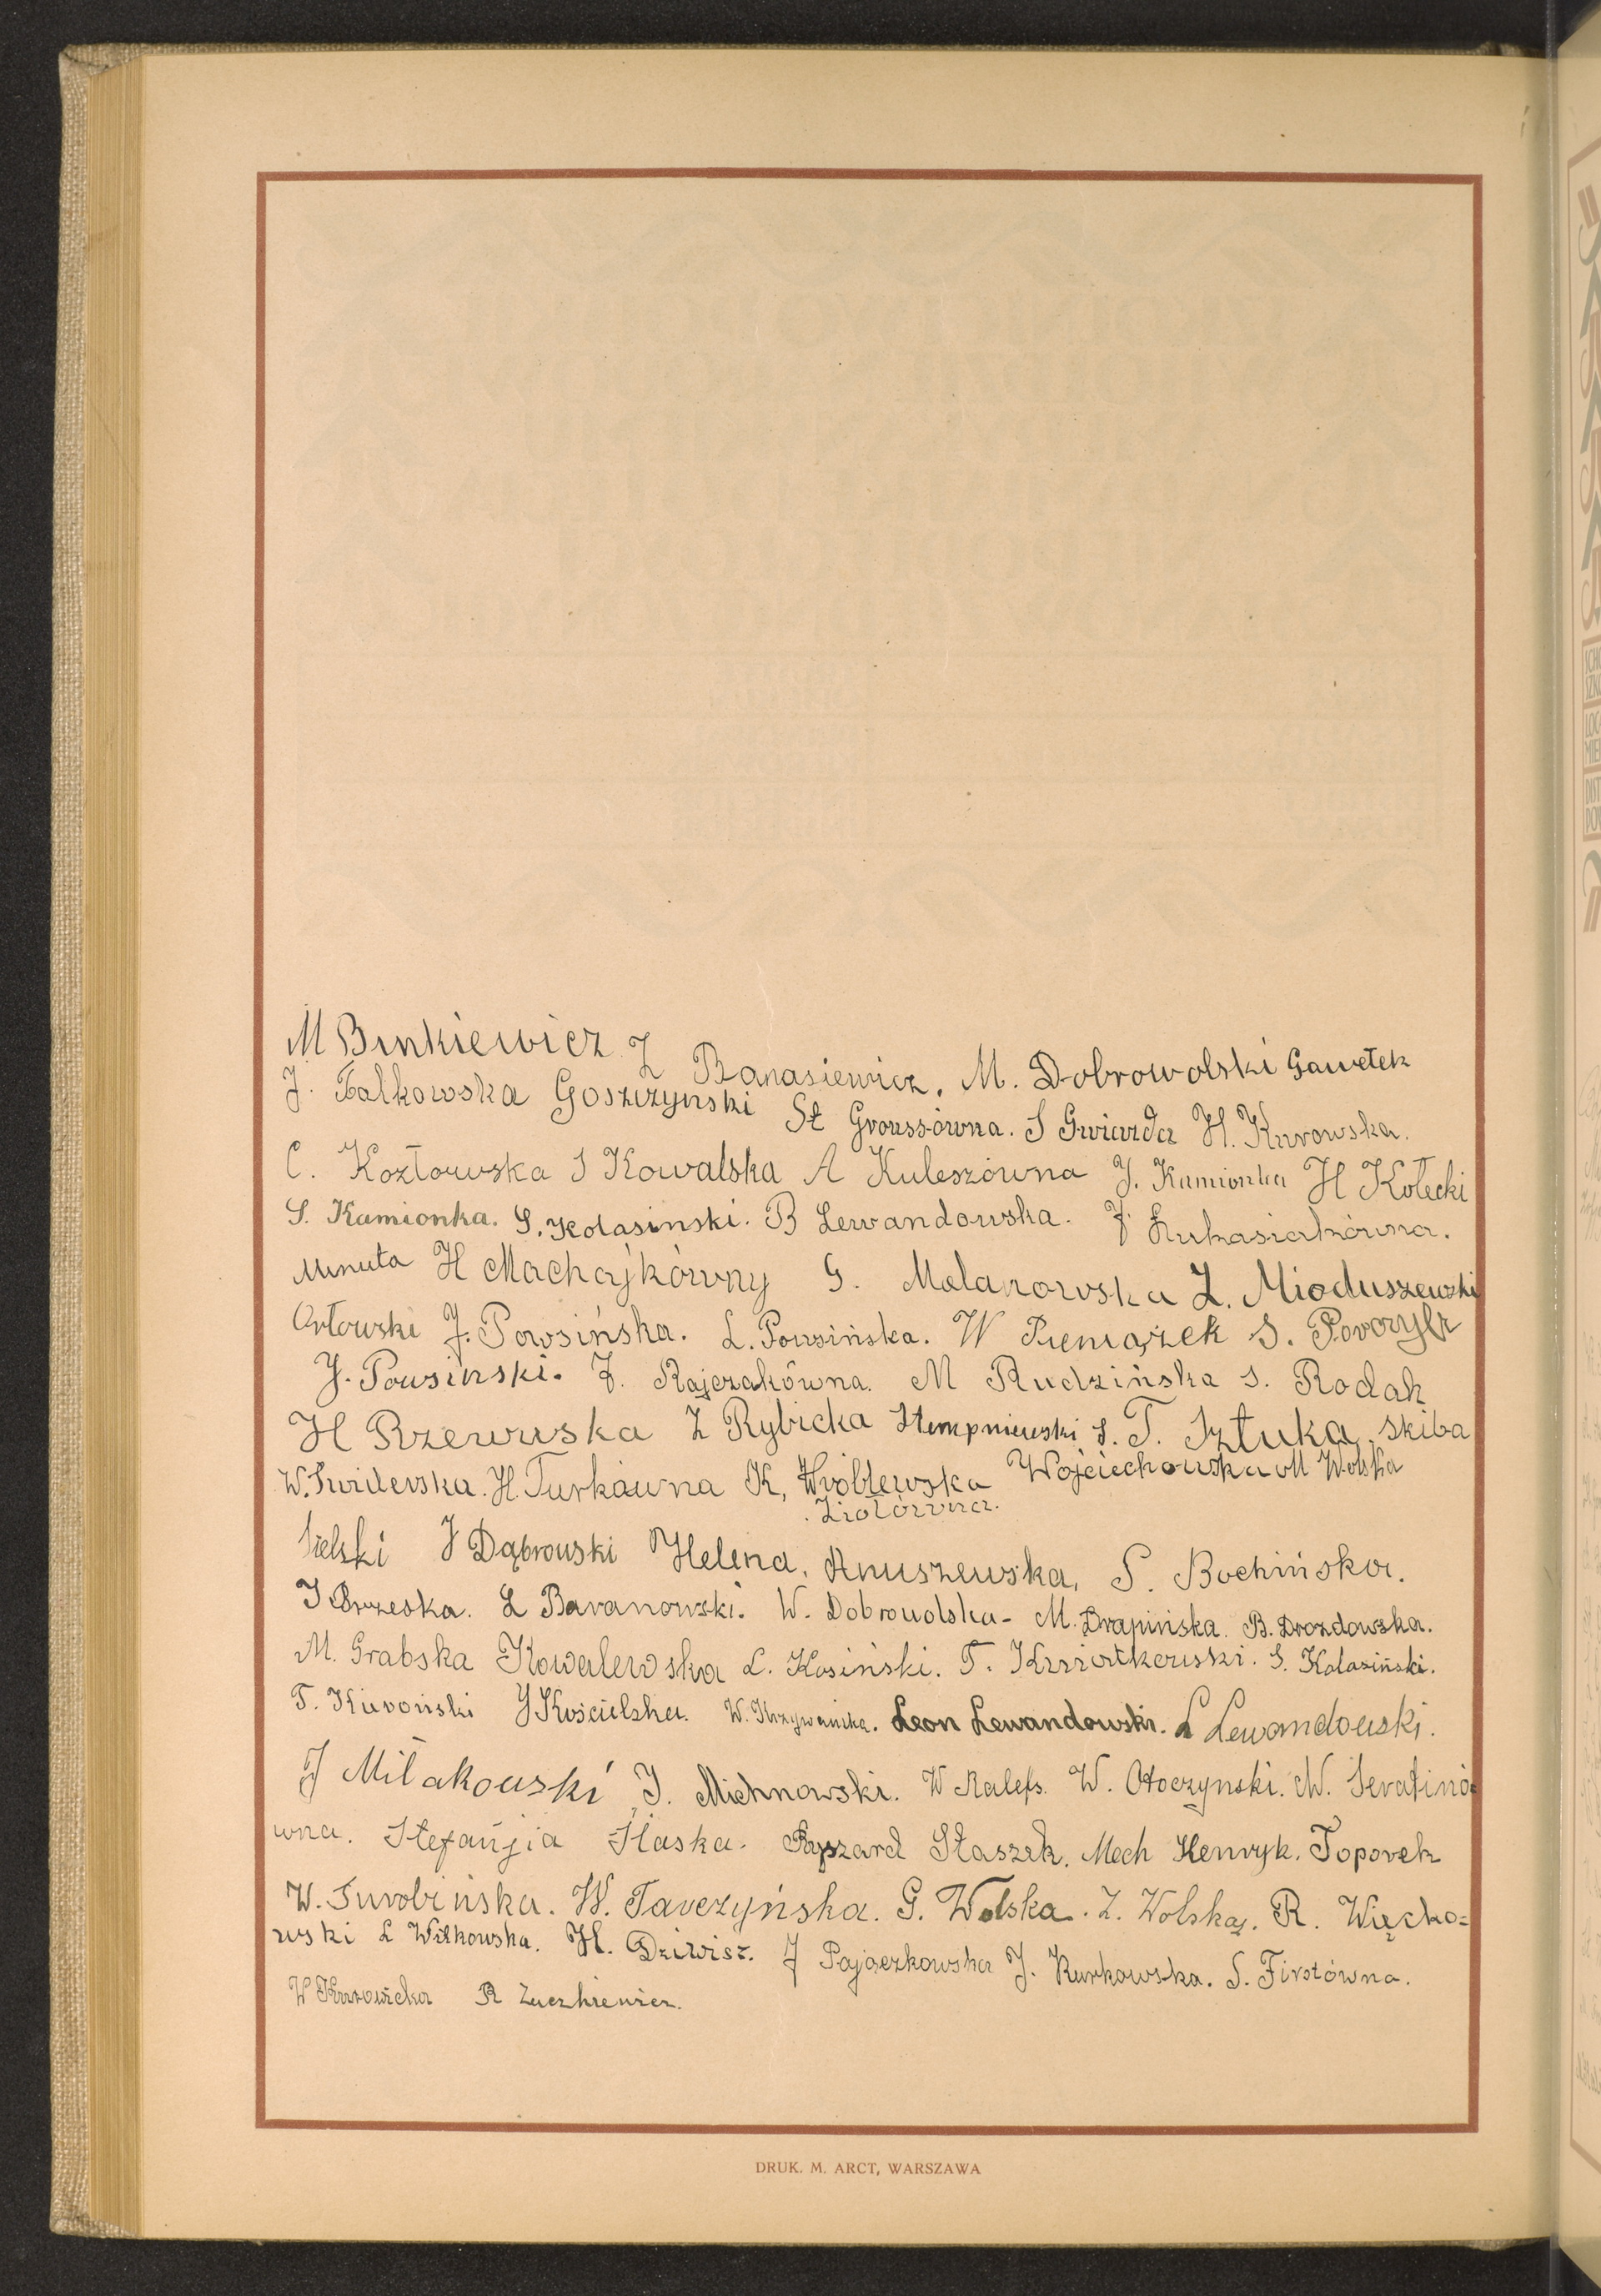 M Binkiewicz Z Banasiewicz. M. Dobrowolski Gawełek
J. Falkowska Goszczynski St Groussówna. S Gwiazda H. Kurowska.
C. Kozłowska S Kowalska A Kuleszówna J. Kamionka H Kołecki
S. Kamionka. S. Kolasinski. B Lewandowska. J. Łukasiakówna.
Minuta H Machajkówny G. Malanowska Z. Mioduszewski
Orłowski J. Powsińska. L. Powsińska. W Pieniążek S.
J. Powsinski. Z. Rajczakówna. M Rudzińska S. Rodak
H Rzewuska Z Rybicka Stempniewski S. T. Sztuka. Skiba
W. Swiderska. H Turkówna K, Wróblewska Wojciechowska M Wolska
Ziołówna.
Sielski J Dąbrowski Helena, Anuszewska, S. Bochińska.
J Brzeska. L Baranowski. W. Dobrowolska- M. Drapińska. B. Drozdowska.
M. Grabska Kowalewska L. Kosiński. T. Kwiatkowski. S. Kolasiński.
T. J Kościelska. W. Leon Lewandowski. L Lewandowski.
J Milakowski J. Michnowski. W Ralefs. W. Otoczynski. W. Serafinó=
wna. Stefanjia Słaska. Ryszard Staszek. Mech Henryk. Toporek
W. Turobinska. W. Tarczyńska. G. Wolska. Z. Wolska. R. Więcko=
wski L Witkowska. H. Dziwisz. J Pajączkowska J. Kurkowska. S. Firstówna.
W Kurowicka R Zuczkiewicz.
DRUK. M. ARCT, WARSZAWA